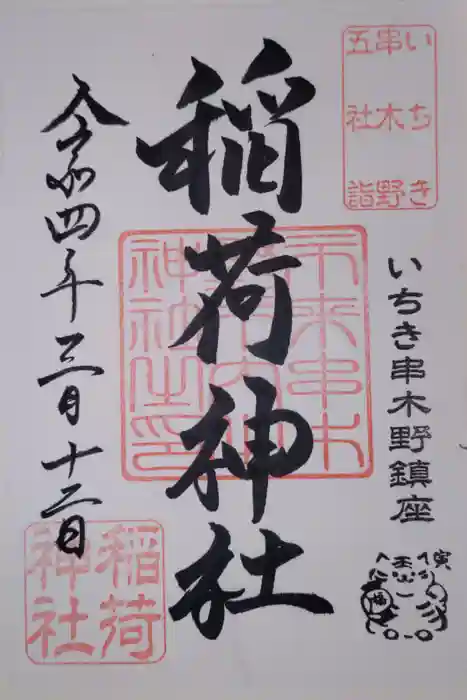 いちき
串木野
五社詣
いちき串木野鎮座
寅
稲荷神社
神社之印
令和四年三月十二日
稲荷
神社